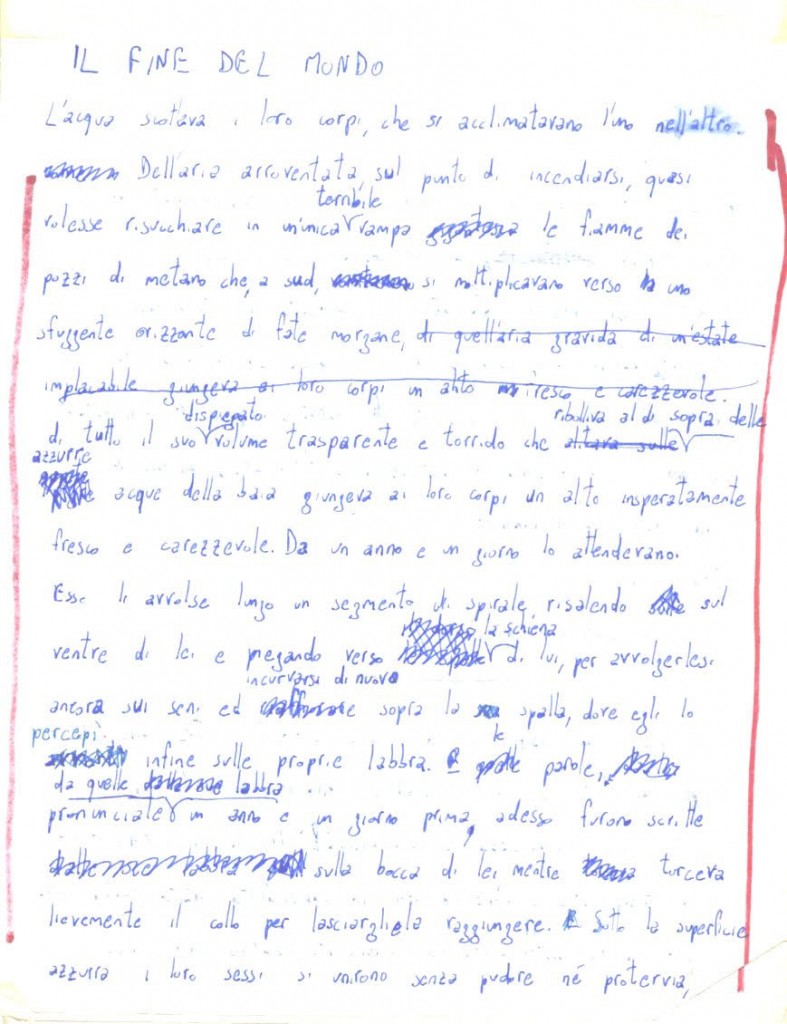 IL FINE DEL MONDO
L'acqua scotava i loro corpi, che si acclimatavano l'uno nell'altro.
Dell'aria arroventata, sul punto di incendiarsi, quasi
terribile
volesse risucchiare in un'unica vampa le fiamme dei
pozzi di metano che, a sud, si moltiplicavano verso uno
sfuggente orizzonte di fate morgane, di quell'aria gravida di un'estate
implacabile giungeva ai loro corpi un alito fresco e carezzevole.
dispiegato ribolliva al di sopra delle
di tutto il suo volume trasparente e torrido che alitava sulle
azzurre
acque della baia giungeva ai loro corpi un alito insperatamente
fresco e carezzevole. Da un anno e un giorno lo attendevano.
Esso li avvolse lungo un segmento di spirale, risalendo sul
la schiena
ventre di lei e piegando verso di lui, per avvolgerlesi
incurvarsi di nuovo
ancora sui seni ed sopra la spalla, dove egli lo
percepì le
infine sulle proprie labbra. E parole,
da quelle labbra
pronunciate un anno e un giorno prima, adesso furono scritte
sulla bocca di lei mentre torceva
lievemente il collo per lasciargliela raggiungere. Sotto la superficie
azzurra i loro sessi si unirono senza pudore né protervia,